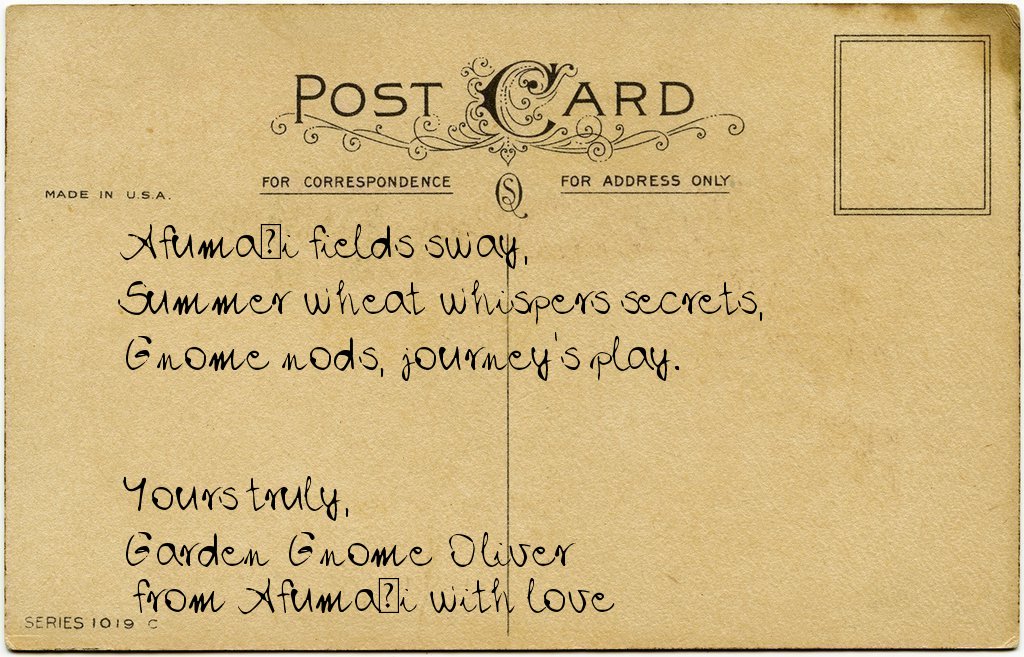 POST CARD
FOR CORRESPONDENCE
FOR ADDRESS ONLY
MADE IN U.S.A.
Afuma▯i fields sway,
Summer wheat whispers secrets,
Gnome nods, journey's play.
Yours truly,
Garden Gnome Oliver
from Afuma▯i with love
SERIES 1019 C